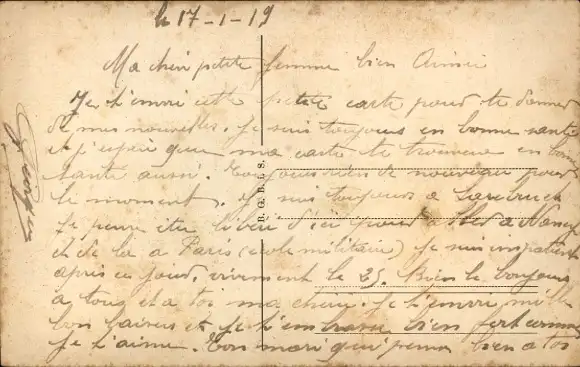 le 17-1-19
Ma cher petite femme bien Aimée
Je t'envoi cette petite carte pour te donner
de mes nouvelles. Je suis toujours en bonne santé
et j'espère que ma carte te trouvera en bonne
santé aussi. Toujours rien de nouveau pour
le moment. Je suis toujours a
Je pense être libéré d'ici pour a Nancy
et de la a Paris (ecole militaire) je suis impatient
après ce jour, vivement le 25. Bien le bonjour
a tous et a toi ma cheri. Je t'envoie mille
bon baisers et je t'embrasse bien fort comme
je t'aime. Ton mari qui pense bien a toi
B. G. B. L. S.